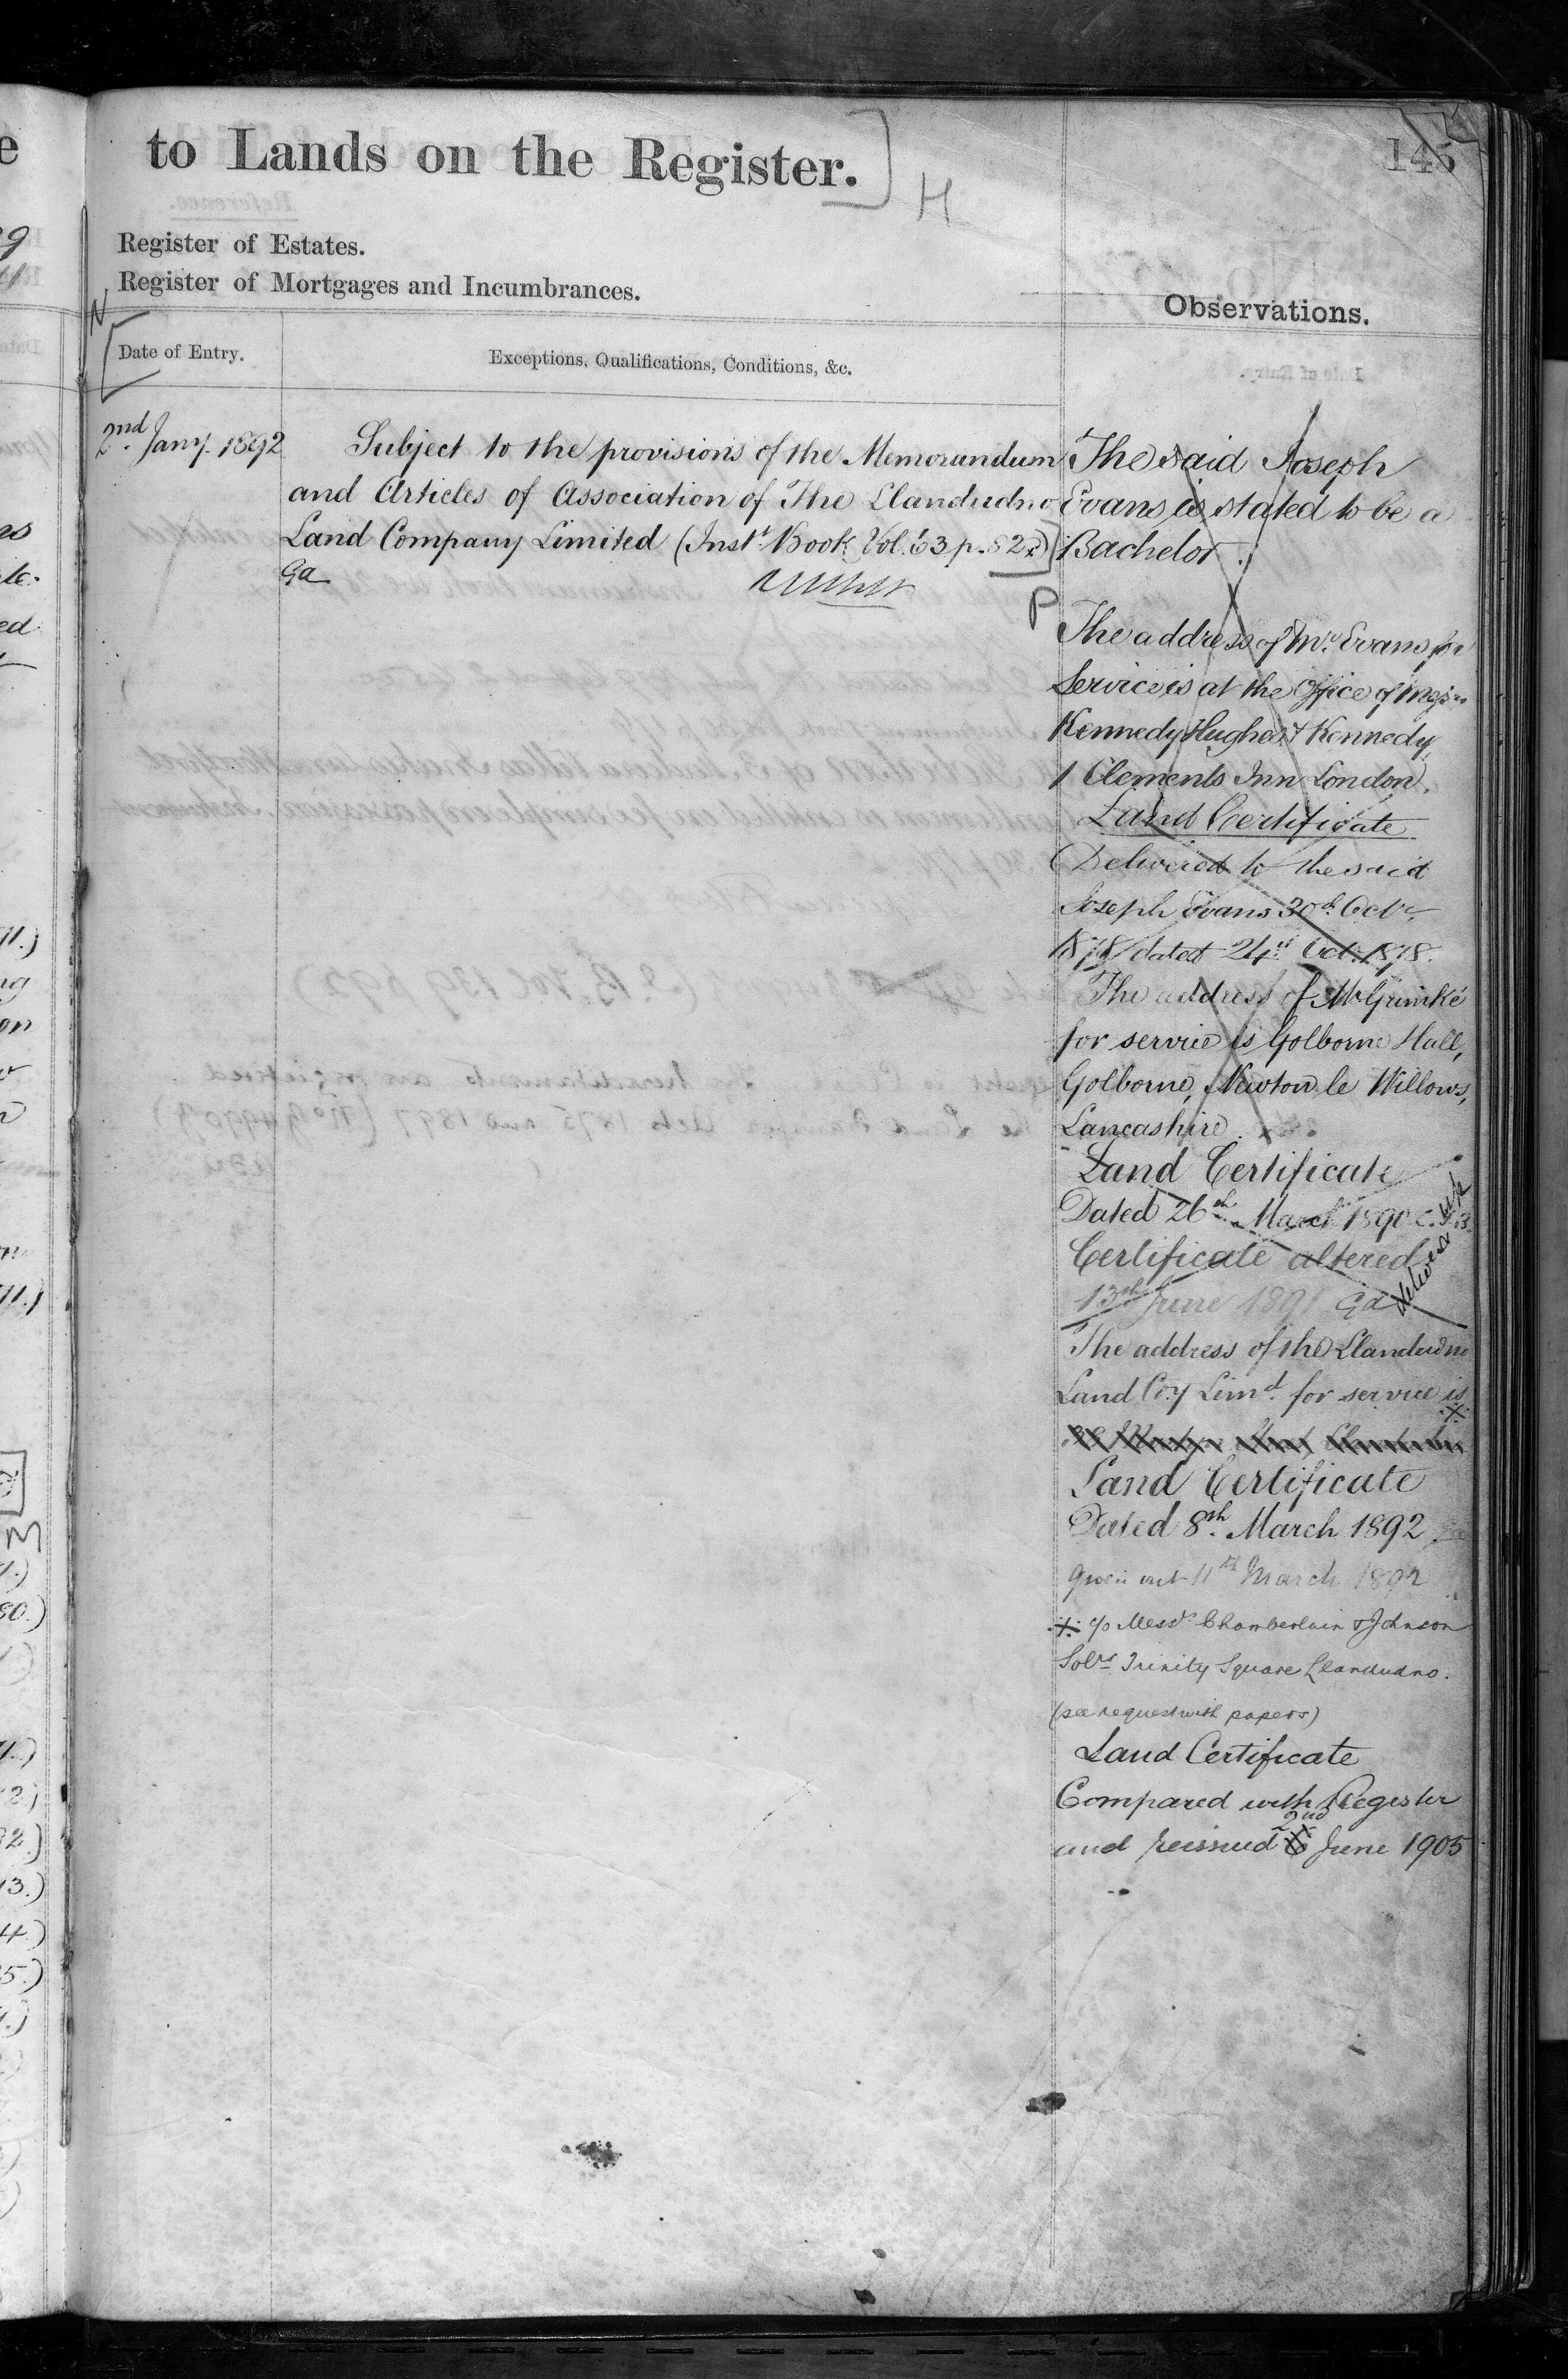 to Lands on the Register.
H
145
Register of Estates.
Register of Mortgages and Incumbrances.
Observations.
N
Date of Entry.
Exceptions, Qualifications, Conditions, &c.
2nd Jany. 1892
Subject to the provisions of the Memorandum
and Articles of Association of The Llandudno
Land Company Limited (Inst. Book Vol. 63 p. 82)
Ga
P
The said Joseph
Evans is stated to be a
Bachelor.
The address of Mr. Evans for
Service is at the Office of Messrs
Kennedy Hughes & Kennedy,
1 Clements Inn London.
Land Certificate
Delivered to the said
Joseph Evans 30th Octr
1878 dated 24th Oct. 1878.
The address of Mr Grimké
for service is Golborne Hall,
Golborne, Newton le Willows,
Lancashire.
Land Certificate
Dated 26th March 1890
Certificate altered
13th June 1891 Ga
The address of the Llandudno
Land Coy Limd. for service is
Land Certificate
Dated 8th. March 1892
Given out 11th March 1892
c/o Messrs Chamberlain & Johnson
Solrs Trinity Square Llandudno.
(see request with papers)
Land Certificate
Compared with Register
and reissued 2nd June 1905